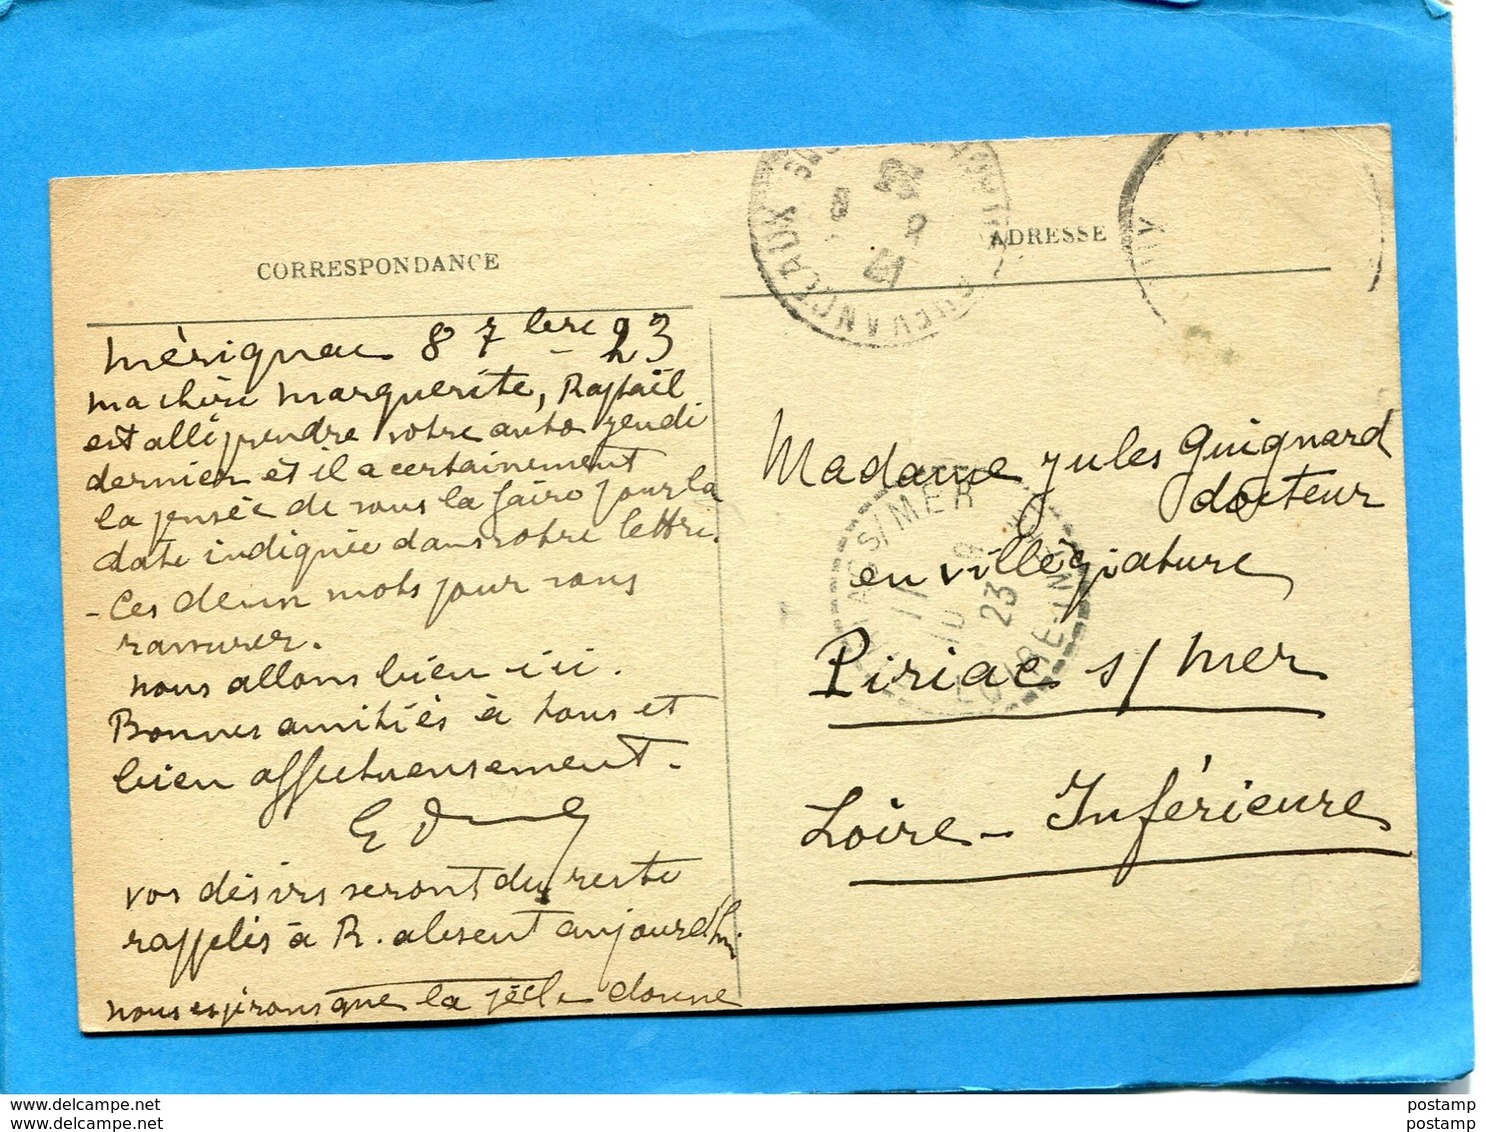 CORRESPONDANCE
ADRESSE
CHEVANCEAUX
17
8
23
Mérignac 8 7bre 23
ma chère Marguerite, Raphaël
est allé prendre votre auto jeudi
dernier et il a certainement
la pensée de vous la faire pour la
date indiquée dans votre lettre.
- Ces deux mots pour vous
rassurer.
nous allons bien ici.
Bonnes amitiés à tous et
bien affectueusement.
vos désirs seront du reste
rappelés à R. absent aujourd'hui.
nous espérons que la pêche donne
Madame Jules Guignard
docteur
en villégiature
Piriac s/ mer
Loire-Inférieure
PIRIAC S/MER
10 9
23
LOIRE-INF
postamp
postamp
www.delcampe.net
www.delcampe.net